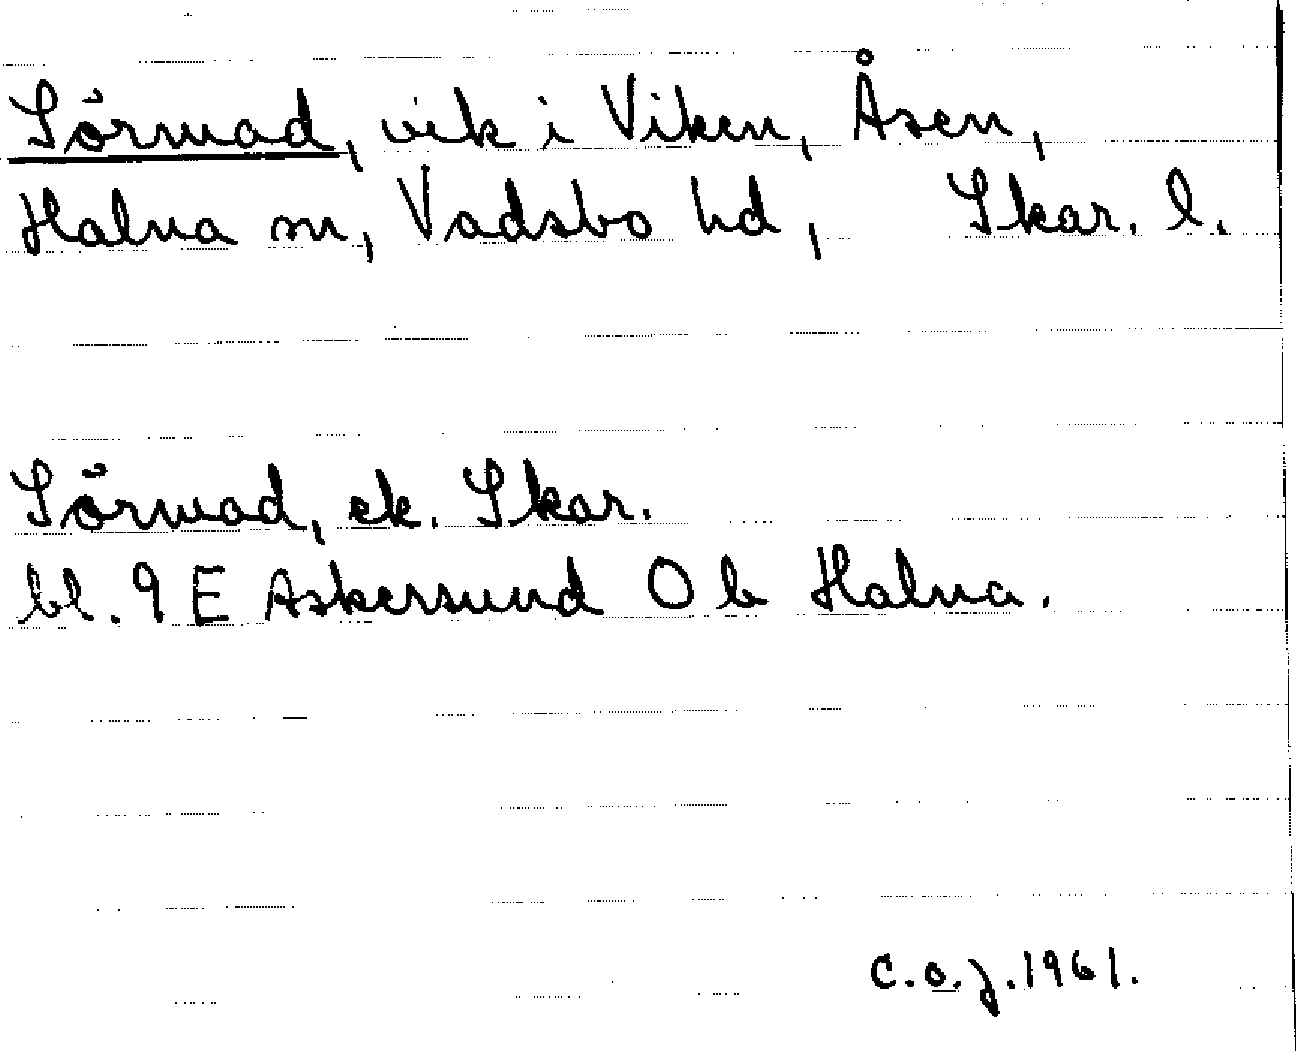 Sörmad, vik i Viken, Åsen,
Halna sn, Vadsbo hd, Skar. l.
Sörmad, ek. Skar.
bl. 9 E Askersund O b Halna.
C.O.J. 1961.